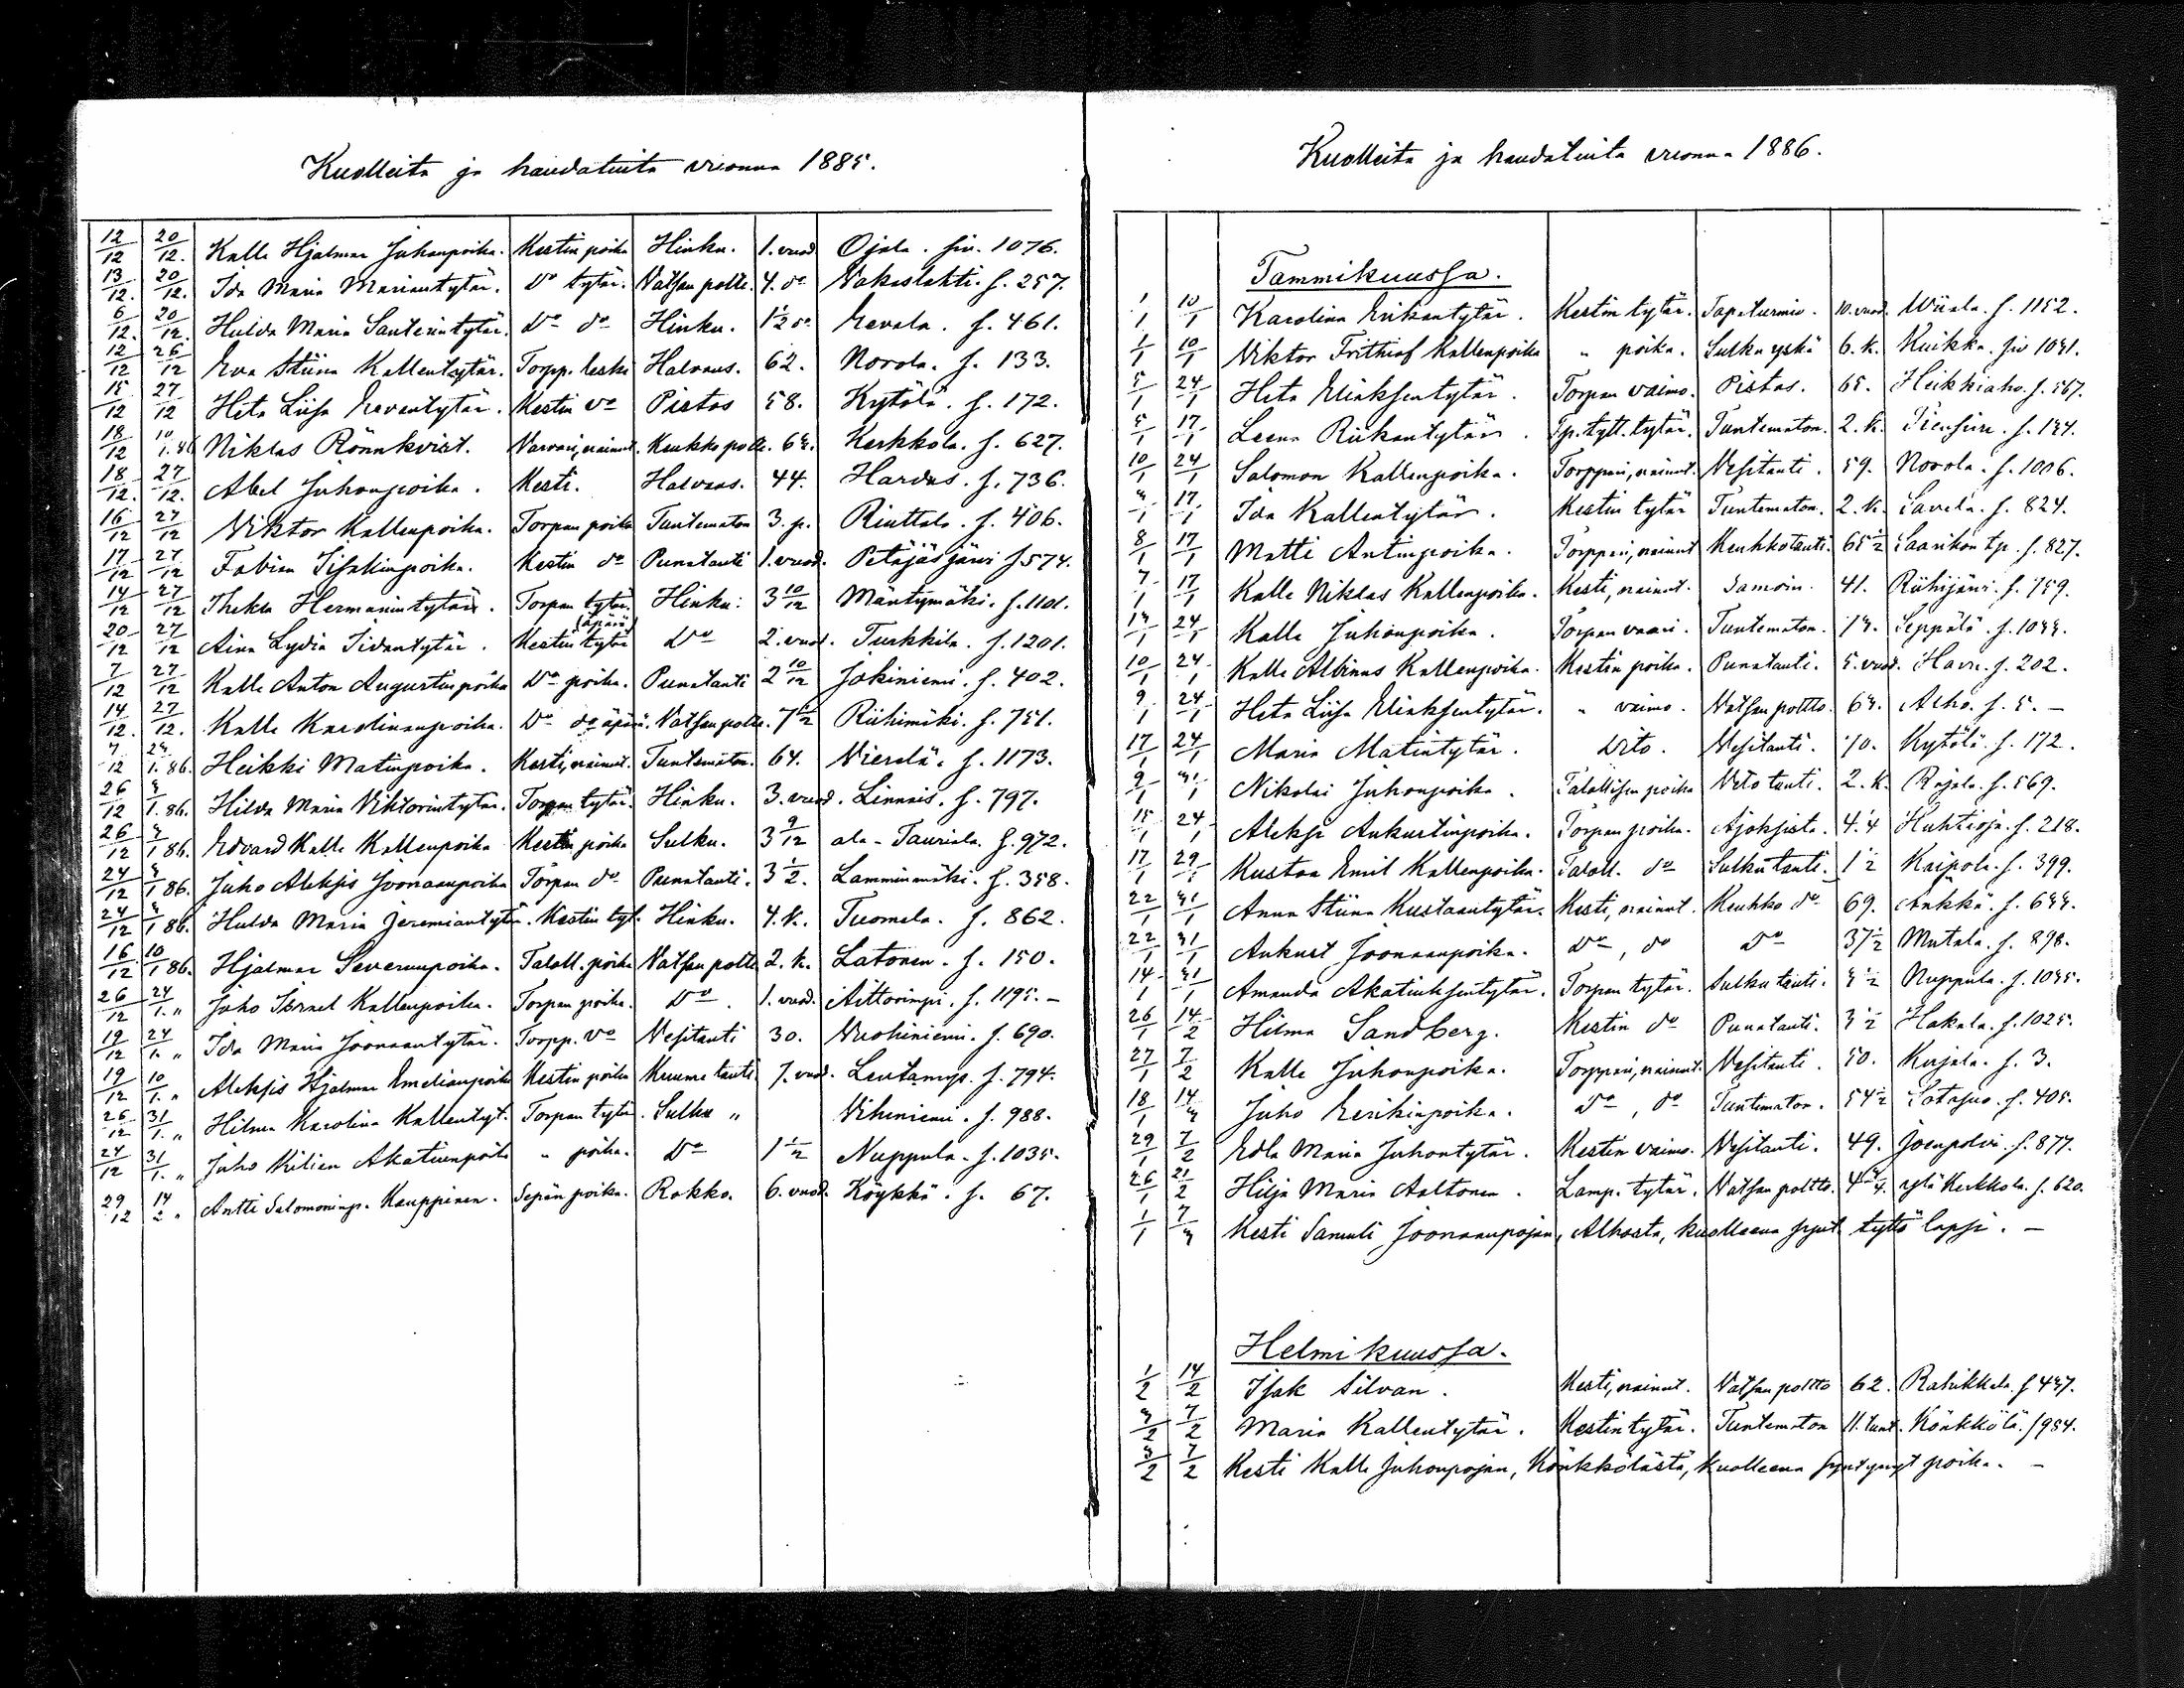 Kuolleita ja haudatuita vuonna 1885.
12/12 20/12. Kalle Hjalmar Juhanpoika. Kestin poika Hinku. 1. vuod Ojala. siv. 1076.
13/12. 20/12. Ida Maria Mariantytär. Do tytär. Vatsan polte. 4. do Vakaslahti. s. 257.
6/12. 20/12. Hulda Maria Santerintytär. Do do Hinku. 1 1/2 do Eevala. s. 461.
12/12 26/12 Eva Stiina Kallentytär. Torpp. leski Halvaus. 62. Norola. s. 133.
15/12 27/12 Heta Liisa Eeventytär. Kestin vo Pistos 58. Kytölä. s. 172.
18/12 10/1.86 Niklas Rönnkvist. Varvari, nainut. Keuhko polte. 63. Kerkkola. s. 627.
18/12. 27/12. Abel Juhonpoika. Kesti. Halvaus. 44. Hardus. s. 736.
16/12 27/12 Viktor Kallenpoika. Torpan poika Tuntematon 3. p. Rinttala. s. 406.
17/12 27/12 Fabian Iisakinpoika. Kestin do Punatauti 1. vuod. Petäjäsjärvi s 574.
14/12 27/12 Thekla Hermanintytär. Torpan tytär. Hinku. 3 10/12 Mäntymäki. s. 1101.
20/12 27/12 Aina Lydia Iidantytär. Kestin tytär (äpärä) Do 2. vuod. Turkkila. s. 1201.
7/12 27/12 Kalle Anton Augustinpoika Do poika. Punatauti 2 10/12 Jokiniemi. s. 402.
14/12. 27/12. Kalle Karolinanpoika. Do do äpärä. Vatsan polte. 7 1/2 Riihimäki. s. 751.
7/12 24/1.86. Heikki Matinpoika. Kesti, nainut. Tuntematon. 64. Vierelä. s. 1173.
26/12 3/1.86. Hilda Maria Viktorintytär. Torpan tytär. Hinku. 3. vuod. Linnais. s. 797.
26/12 3/1 86. Edvard Kalle Kallenpoika Kestin poika Sulku. 3 9/12 ala-Tauriala. s. 972.
24/12 3/1 86. Juho Aleksis Joonaanpoika Torpan do Punatauti. 3 1/2. Lamminmäki. s. 358.
24/12 3/1 86. Hulda Maria Jeremiantytär. Kestin tyt. Hinku. 4. k. Tuomela. s. 862.
16/12 10/1 86. Hjalmar Severinpoika. Taloll. poika Vatsan polte 2. k. Latonen. s. 150.
26/12 24/1. " Juho Israel Kallenpoika. Torpan poika. Do. 1. vuod. Aittorinpi. s. 1195. —
19/12 24/1. " Ida Maria Joonaantytär. Torpp. vo Vesitauti 30. Vuohiniemi. s. 690.
19/12 10/1. " Aleksis Hjalmar Emelianpoika Kestin poika Kuume tauti 7. vuod. Leutamys. s. 794.
26/12 31/1. " Hilma Karolina Kallentyt. Torpan tytär Sulku " Vihiniemi. s. 988.
24/12 31/1. " Juho Kilian Akatiinpoika " poika. Do 1 1/2 Nuppula. s. 1035.
29/12 14/2 " Antti Salomoninp. Kauppinen. Sepän poika. Rokko. 6. vuod. Köykkä. s. 67.
Kuolleita ja haudatuita vuonna 1886.
Tammikuussa.
1/1 10/1 Karolina Erikantytär. Kestin tytär. Tapaturmio. 10. vuod. Uiiala. s. 1152.
1/1 10/1 Viktor Frithiof Kallenpoika " poika. Sulku yskä 6. k. Kuikka. siv 1031.
5/1 24/1 Heta Eliaksentytär. Torpan vaimo. Pistos. 65. Heikkiaho. s. 567.
5/1 17/1 Leena Riikantytär. Tp. tytt. tytär. Tuntematon. 2. k. s. 134.
10/1 24/1 Salomon Kallenpoika. Torppari, nainut. Vesitauti. 59. Norola. s. 1006.
3/1 17/1 Ida Kallentytär. Kestin tytär Tuntematon. 2. k. Savela. s. 824.
8/1 17/1 Matti Antinpoika. Torppari, nainut Keuhkotauti. 65 1/2 Saarikon tp. s. 827.
7/1 17/1 Kalle Niklas Kallenpoika. Kesti, nainut. Samoin. 41. Riihijärvi. s. 759.
13/1 24/1 Kalle Juhonpoika. Torpan vaari. Tuntematon. 73. Seppälä. s. 1033.
10/1 24/1 Kalle Albinus Kallenpoika. Kestin poika. Punatauti. 5. vuod. Havu. s. 202.
9/1 24/1 Heta Liisa Eliaksentytär. " vaimo. Vatsan poltto. 63. Arho. s. 5. —
17/1 24/1 Maria Matintytär. Dito. Vesitauti. 70. Kytölä. s. 172.
9/1 31/1 Nikolai Juhonpoika. Talollisen poika Veto tauti. 2. k. Rajala. s. 569.
15/1 24/1 Aleksi Aukustinpoika. Torpan poika. Ajoksista. 4. 4 Huhtioja. s. 218.
17/1 29/1 Kustaa Emil Kallenpoika. Taloll. do Sulkutauti. 1 1/2 Kaipola. s. 399.
22/1 31/1 Anna Stiina Kustaantytär. Kesti, nainut. Keuhko do 69. Ankka. s. 633.
22/1 31/1 Aukust Joonaanpoika. Do, do Do 37 1/2 Mutala. s. 898.
14/1 31/1 Amanda Akatiuksentytär. Torpan tytär. Sulku tauti. 3 1/2 Nuppula. s. 1035.
26/1 14/2 Hilma Sandberg. Kestin do Punatauti. 3 1/2 Hakala. s. 1025.
27/1 7/2 Kalle Juhonpoika. Torppari, nainut. Vesitauti. 50. Kirjala. s. 3.
18/1 14/3 Juho Eerikinpoika. Do, do Tuntematon. 54 1/2 Sotasuo. s. 405.
29/1 7/2 Edla Maria Juhontytär. Kestin vaimo. Vesitauti. 49. Joenpolvi. s. 877.
26/1 21/2 Hilja Maria Aaltonen. Lamp. tytär. Vatsan poltto. 4 3/4. ylä Kerkkola. s. 620.
1/1 7/3 Kesti Samuli Joonaanpojan, Alhosta, kuolleena synt. tyttö lapsi. —
Helmikuussa.
1/2 14/2 Isak Silvan. Kesti, nainut. Vatsan poltto 62. Rahikkala. s 437.
3/2 7/2 Maria Kallentytär. Kestin tytär. Tuntematon 11. tunt. Könkkölä. s 984.
3/2 7/2 Kesti Kalle Juhonpojan, Könkkölästä, kuolleena syntynyt poika. —